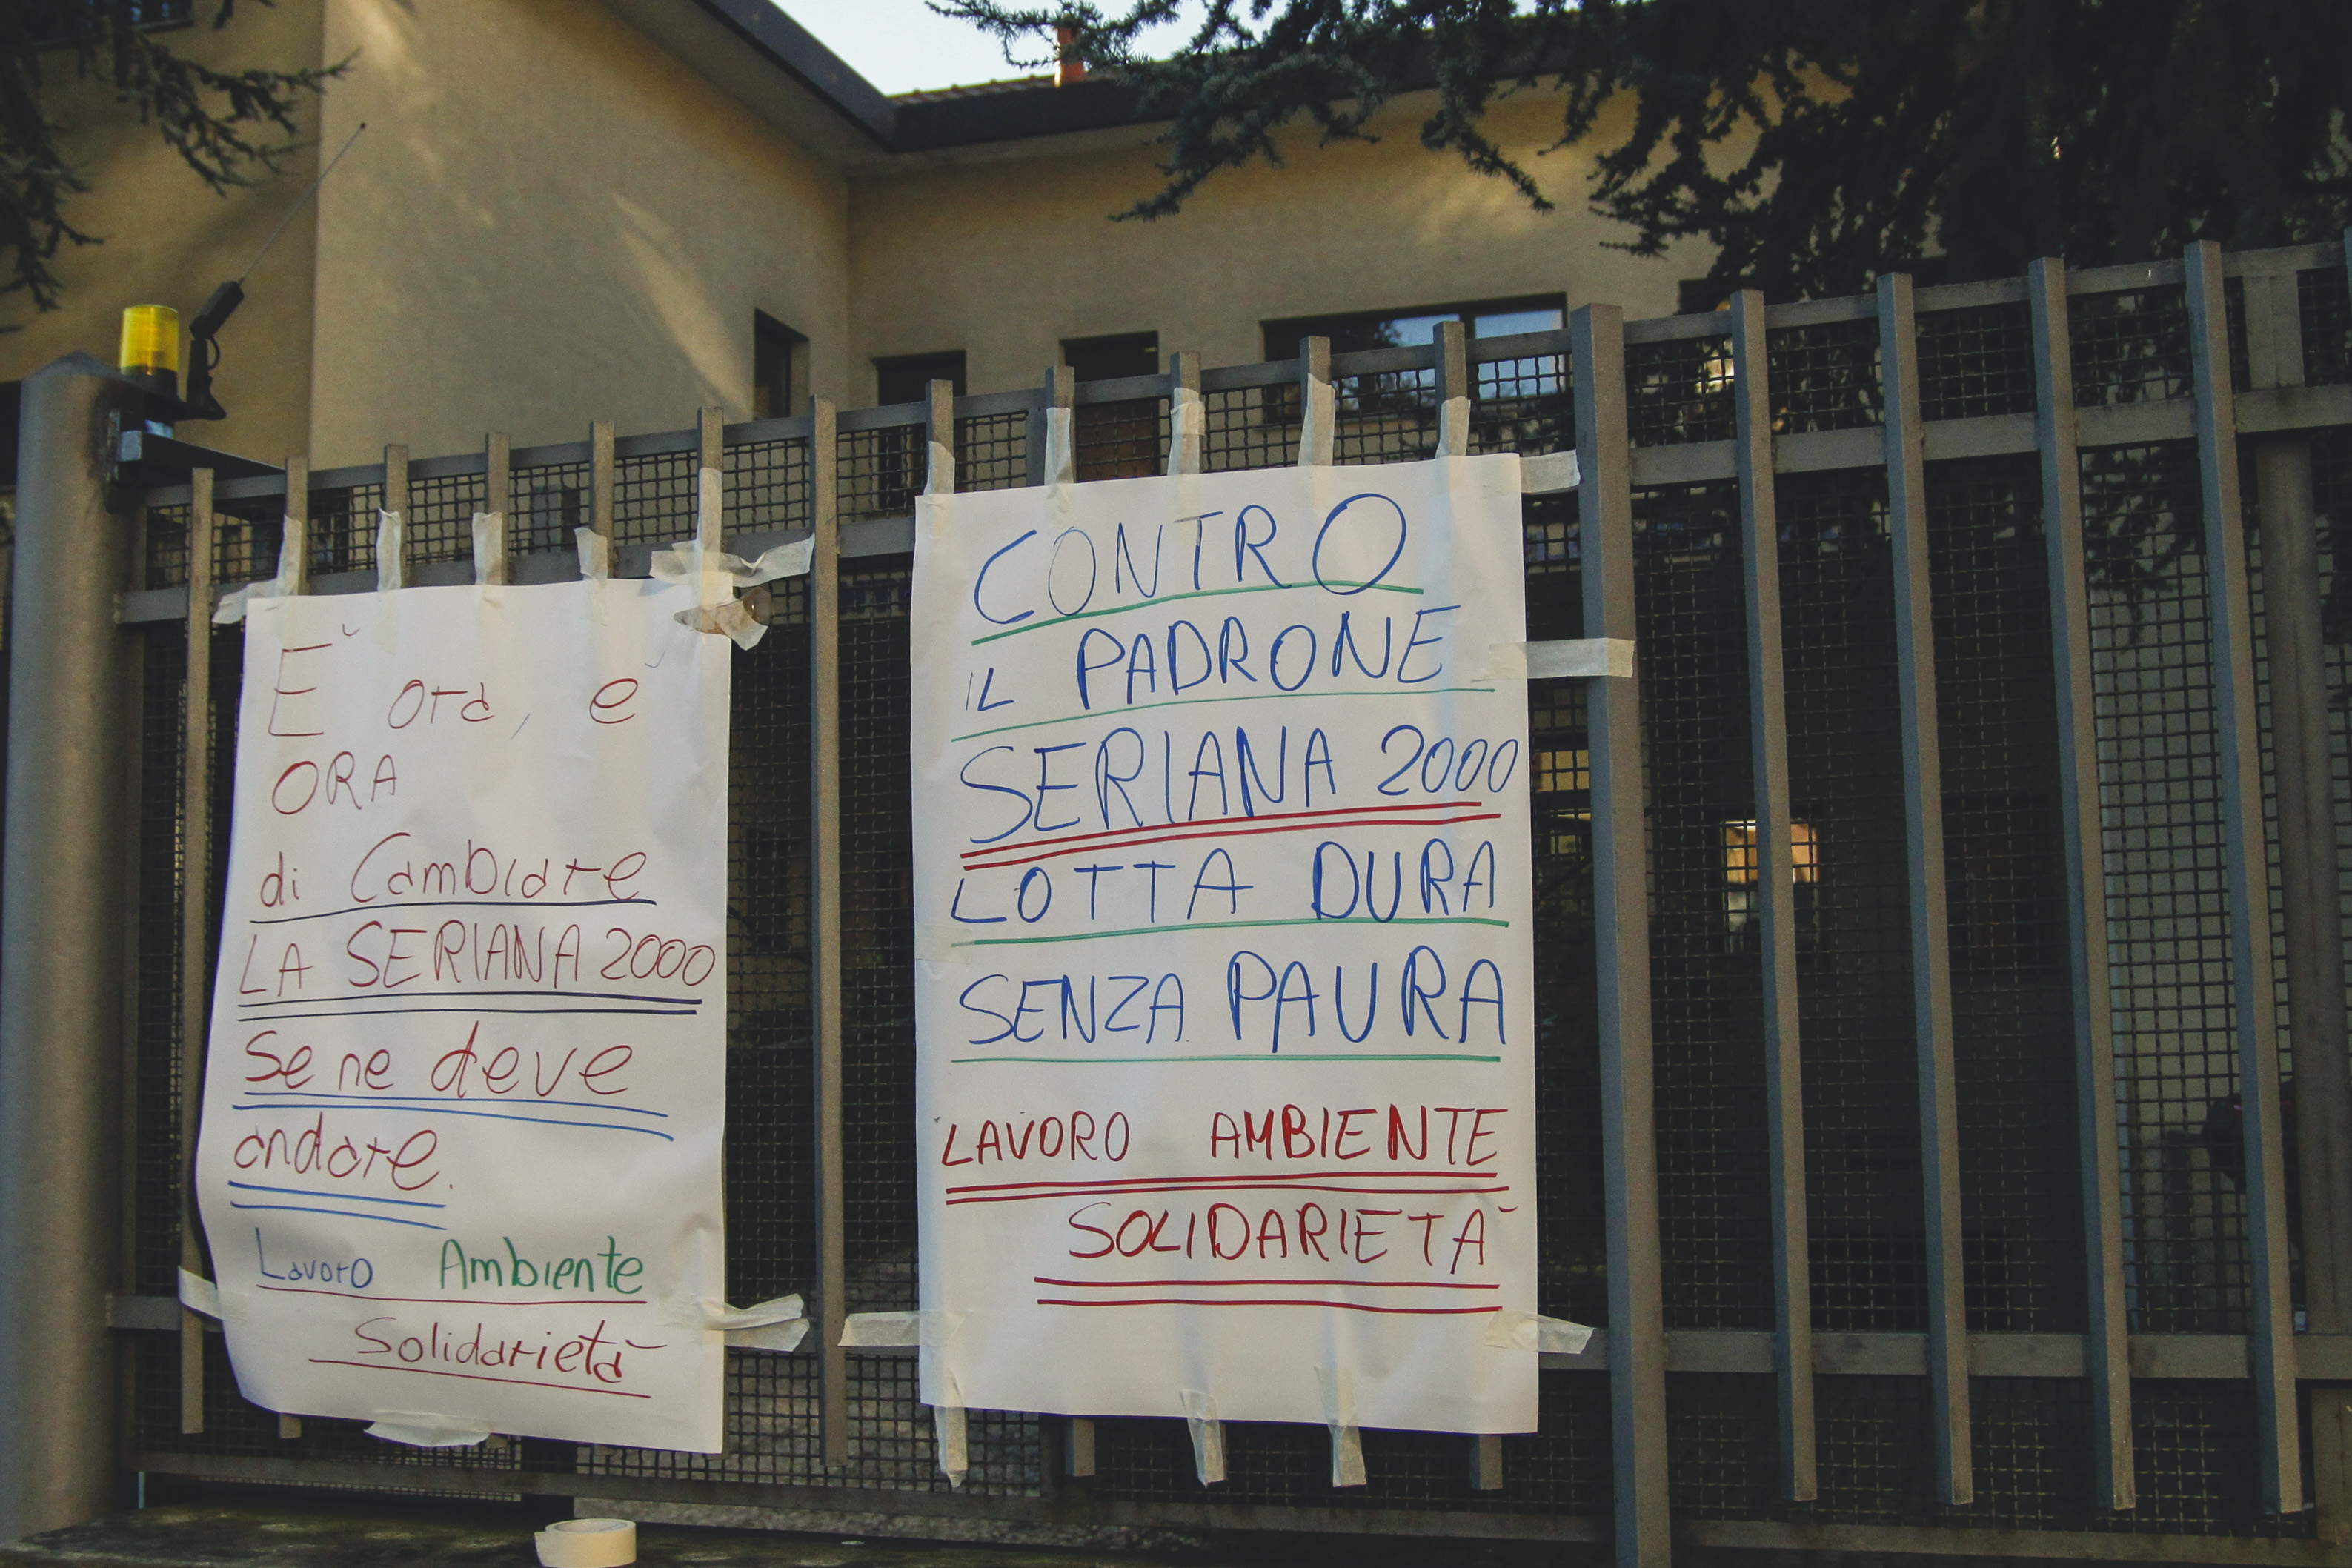 E` ora, e`
ORA
di Cambiare
LA SERIANA 2000
Se ne deve
andare.
Lavoro Ambiente
Solidarietà
CONTRO
IL PADRONE
SERIANA 2000
LOTTA DURA
SENZA PAURA
LAVORO AMBIENTE
SOLIDARIETÀ